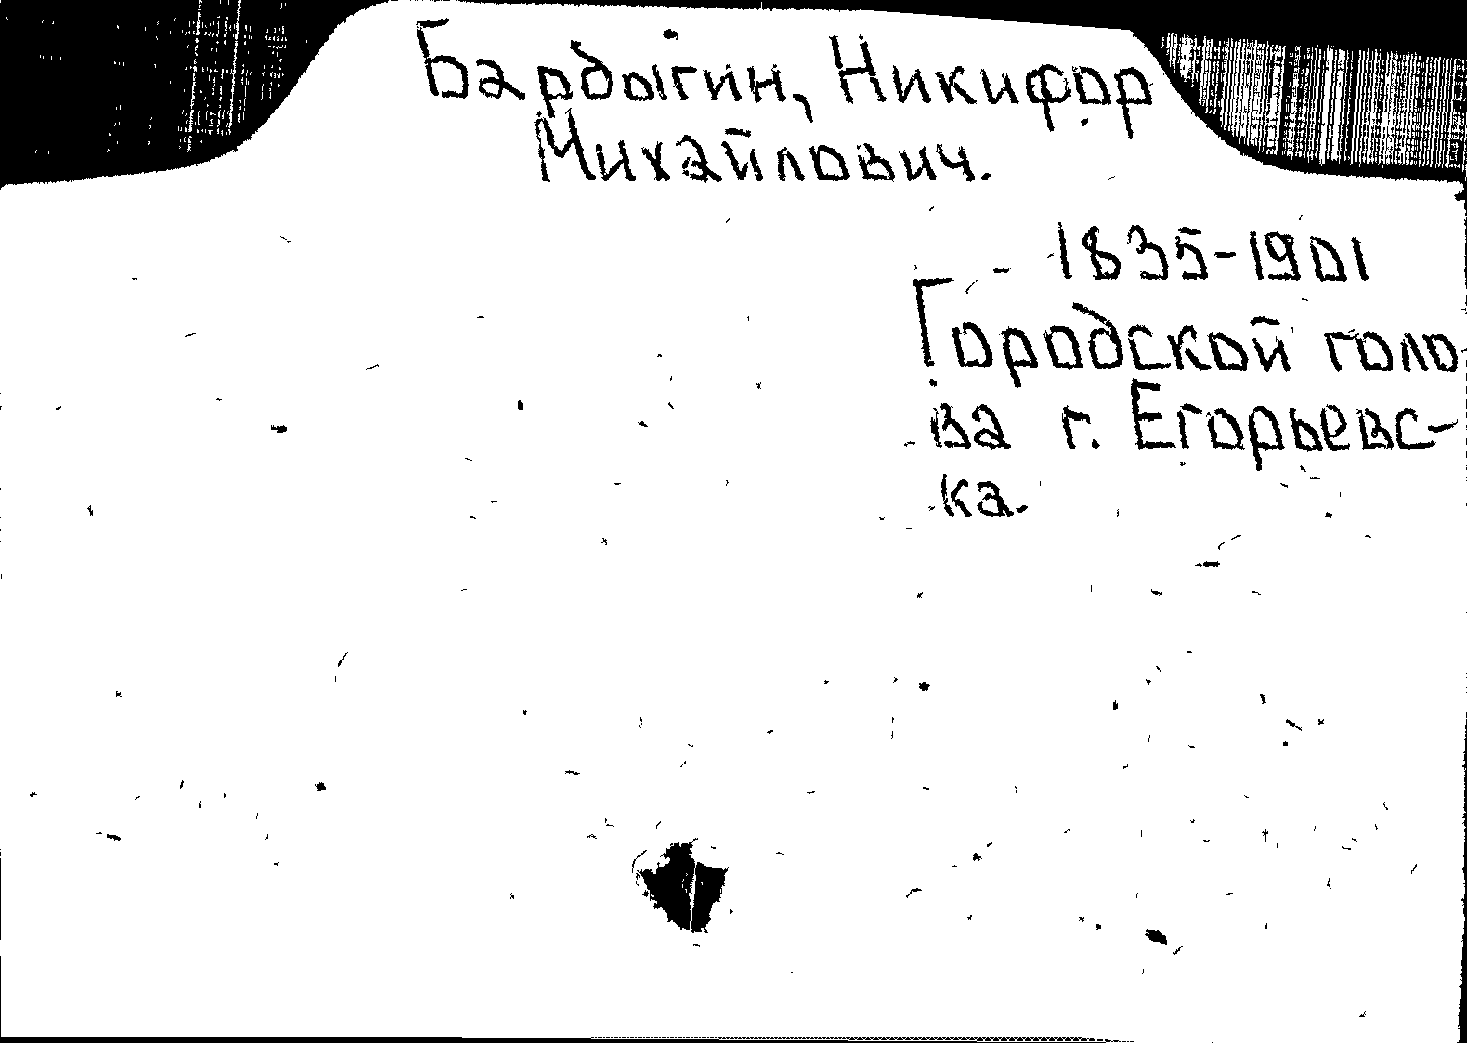 Бардыгин, Никифор
Михайлович.
1835-1901
Городской голо-
ва г. Егорьевс-
ка.